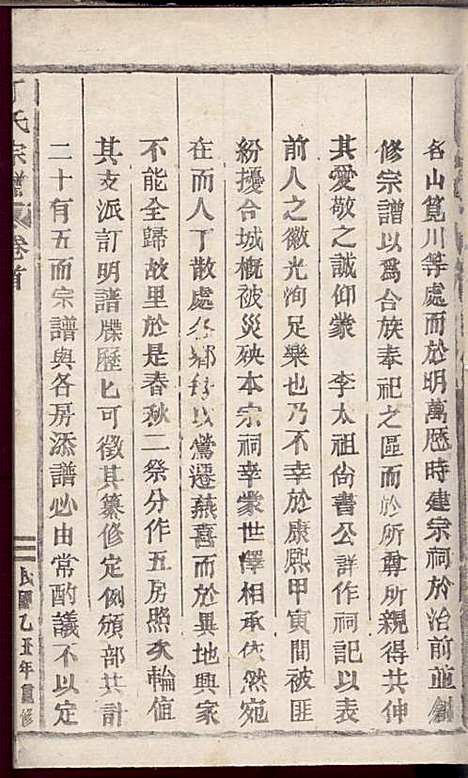 各山筧川等處而於明萬歷時建宗祠於治前並創
修宗譜以爲合族奉祀之區而於所尊所親得共伸
其愛敬之誠仰蒙 李太祖尚書公詳作祠記以表
前人之徽光洵足樂也乃不幸於康熙甲寅間被匪
紛擾合城概被災殃本宗祠幸蒙世澤相承依然宛
在而人丁散處各鄉每以鶯遷燕喜而於異地興家
不能全歸故里於是春秋二祭分作五房照次輪值
其支派訂明譜牒歷匕可徵其纂修定例頒部共計
二十有五而宗譜與各房添譜必由常酌議不以定
丁氏宗譜 卷首
民國乙丑年重修